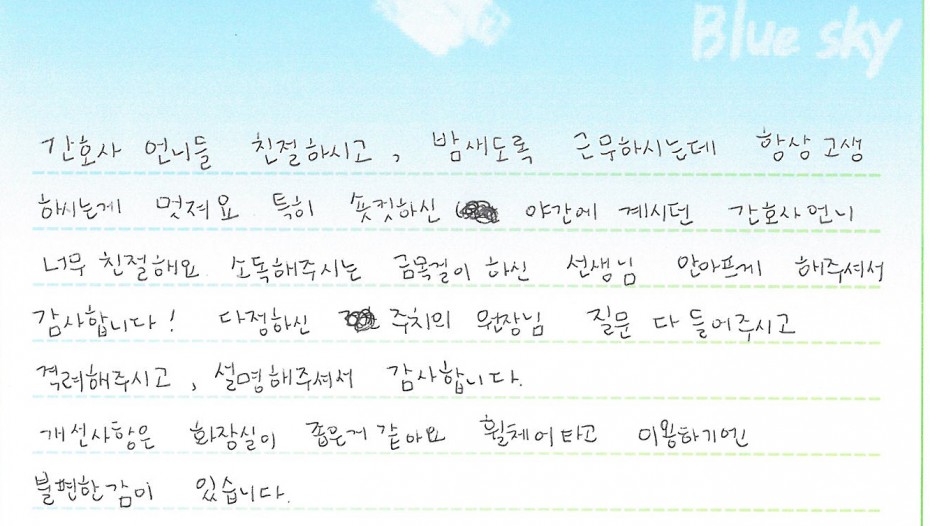 Blue sky
간호사 언니들 친절하시고, 밤새도록 근무하시는데 항상 고생
하시는게 멋져요 특히 숏컷하신 야간에 계시던 간호사언니
너무 친절해요 소독해주시는 금목걸이 하신 선생님 안아프게 해주셔서
감사합니다! 다정하신 주치의 원장님 질문 다 들어주시고
격려해주시고, 설명해주셔서 감사합니다.
개선사항은 화장실이 좁은거 같아요 휠체어타고 이용하기엔
불편한감이 있습니다.